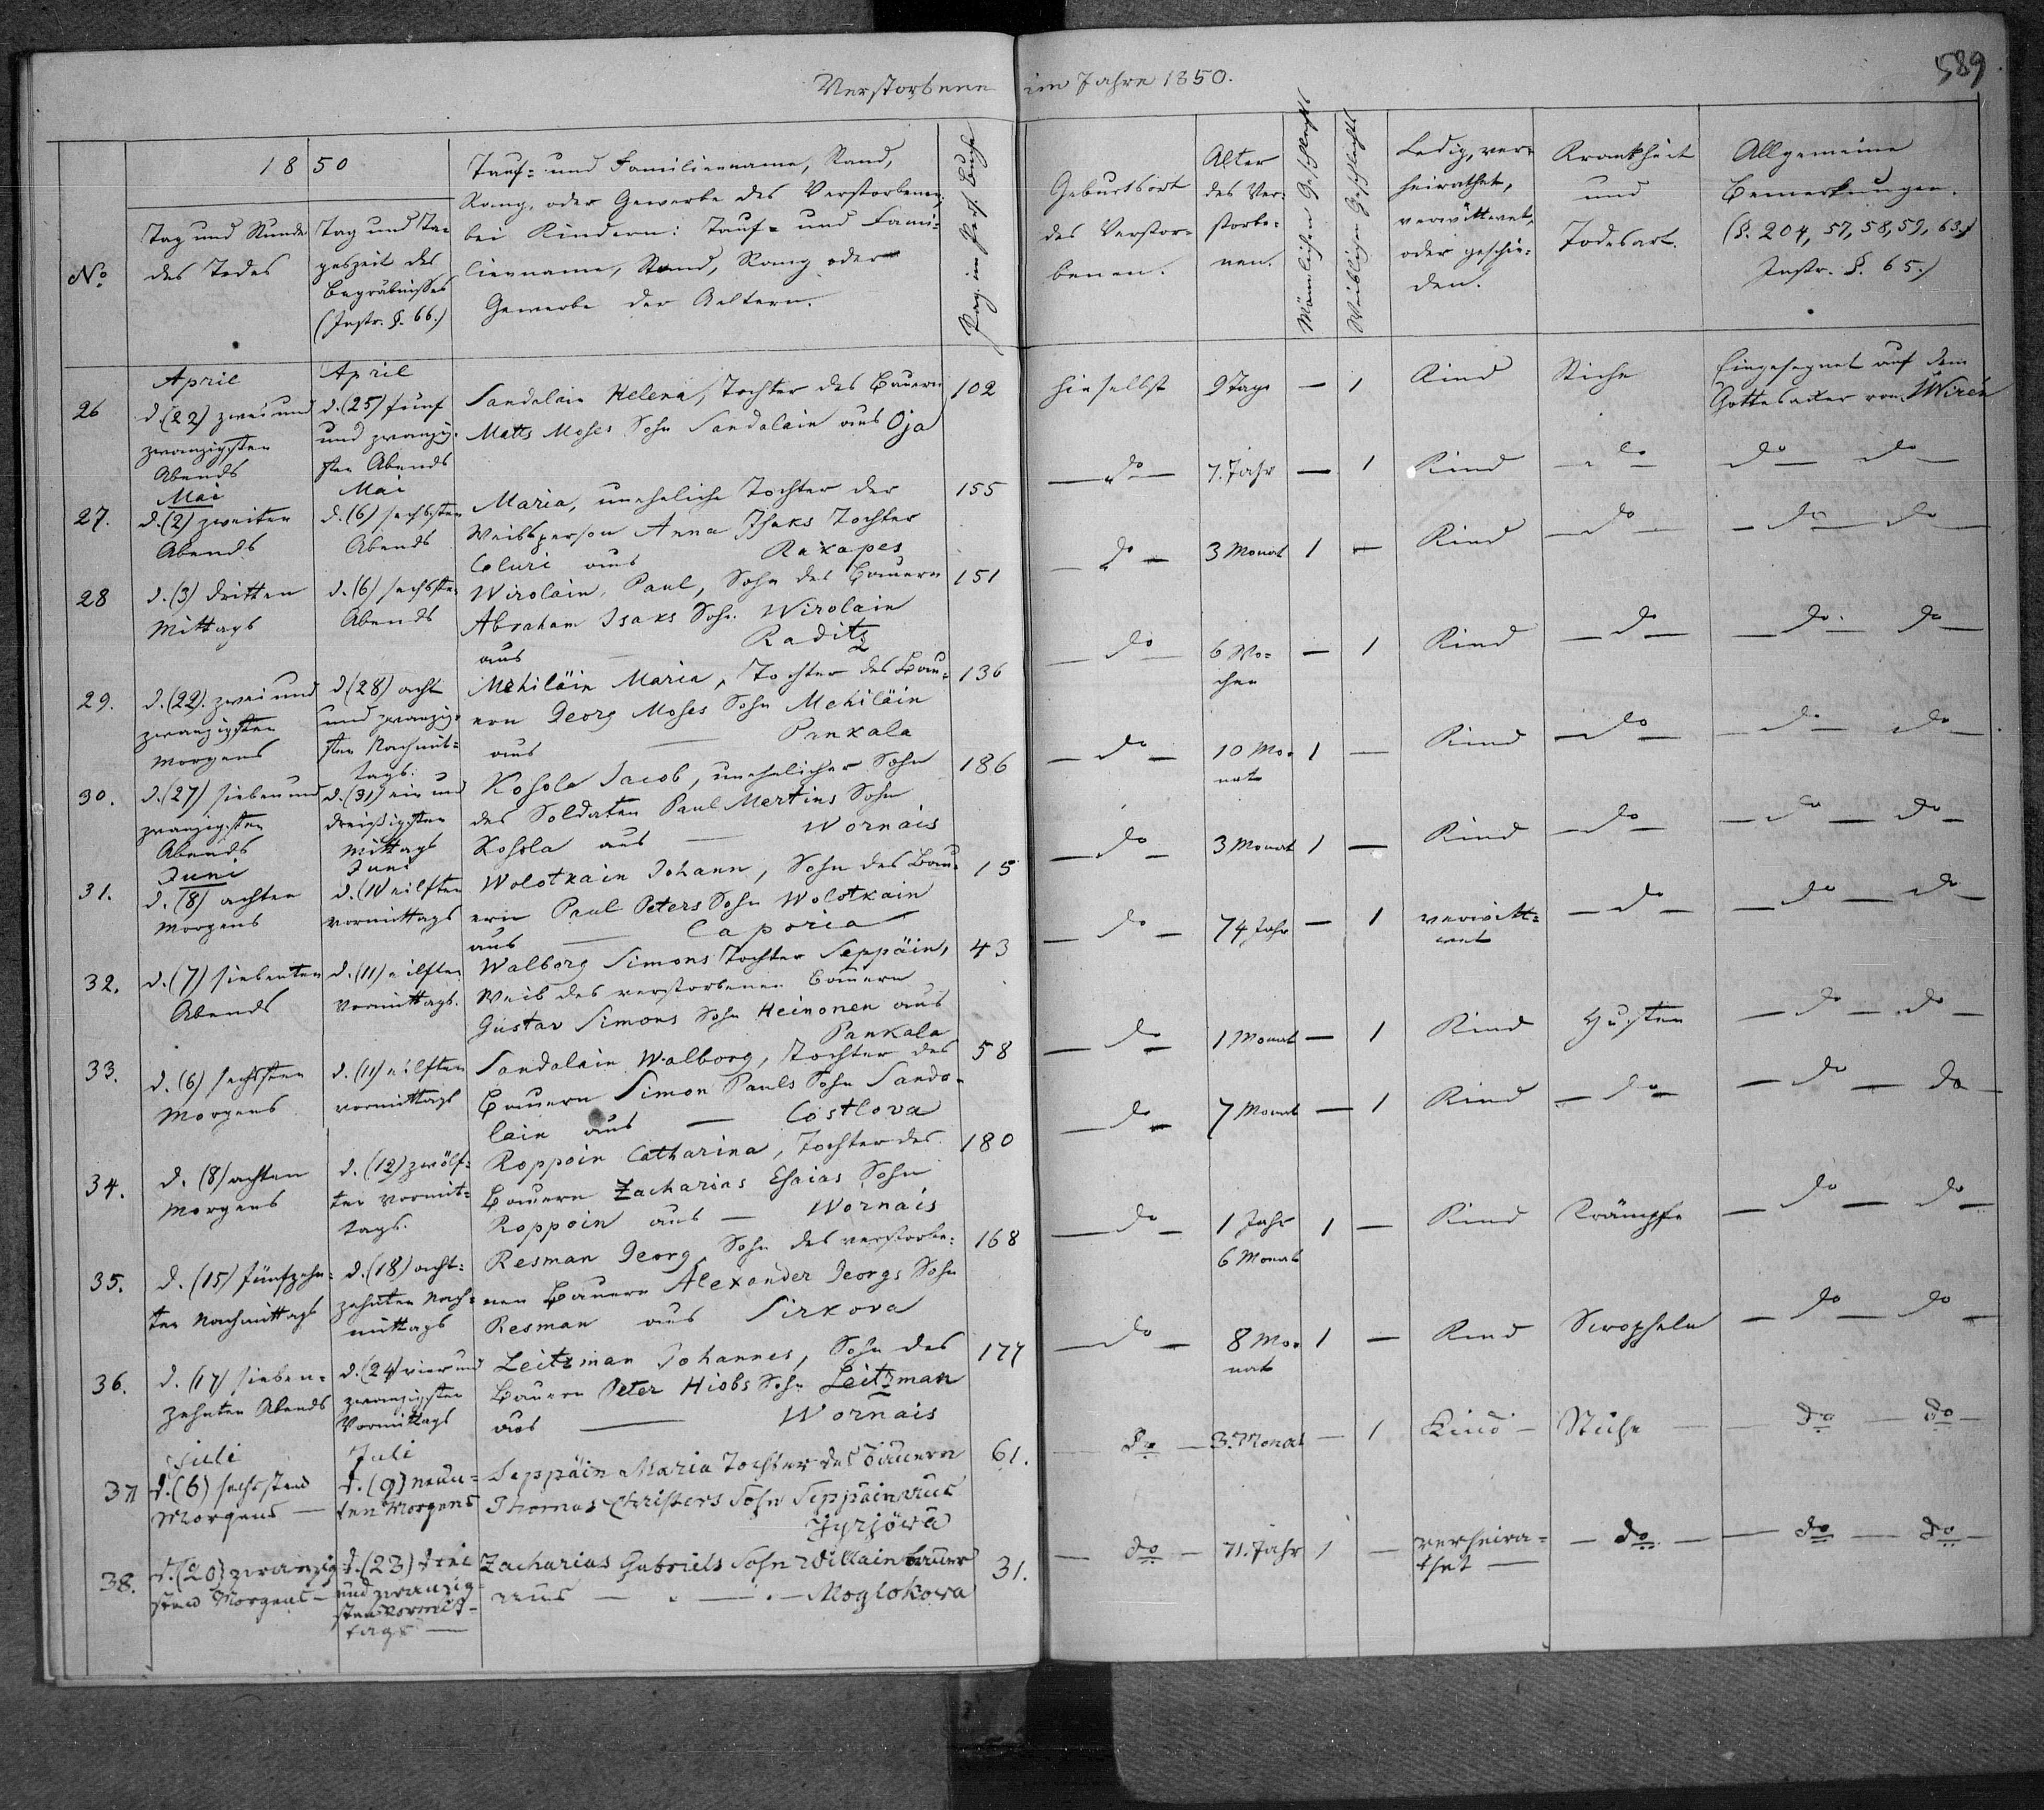 Verstorbene im Jahre 1850.
589
No
1850
Tag und Stunde
des Todes
Tag und Ta-
geszeit des
Begräbnisses
(Instr. §. 66.)
Tauf- und Familienname, Stand,
Rang, oder Gewerbe des Verstorbenen,
bei Kindern: Tauf- und Fami-
lienname, Stand, Rang oder
Gewerbe der Aeltern.
Pag. im Pers. Buche
Geburtsort
des Verstor-
benen.
Alter
des Ver-
storbe-
nen.
Männlichen Geschlechts
Weiblichen Geschlechts
Ledig, ver-
heirathet,
verwittwet,
oder geschie-
den.
Krankheit
und
Todesart.
Allgemeine
Bemerkungen.
(§. 204, 57, 58, 59, 63.)
Instr. §. 65.)
26
April
d. (22) zwei und
zwanzigsten
Abends
April
d. (25) fünf
und zwanzig-
sten Abends
Sandalain Helena, Tochter des Bauern
Matts Moses Sohn Sandalain aus Oja
102
hieselbst
9 Tage
—
1
Kind
Stiche
Eingesegnet auf dem
Gottesacker von
27.
Mai
d. (2) zweiten
Abends
Mai
d. (6) sechsten
Abends
Maria, uneheliche Tochter der
Weibsperson Anna Isaks Tochter
Coluri aus Raxapes
155
— do —
7. Jahr
—
1
Kind
— do —
do — do —
28
d. (3) dritten
Mittags
d. (6) sechsten
Abends
Wirolain, Paul, Sohn des Bauern
Abraham Isaks Sohn Wirolain
aus — Raditz
151
— do —
3 Monat
1
—
Kind
— do —
— do — do —
29.
d. (22). zwei und
zwanzigsten
Morgens
d. (28) acht
und zwanzig-
sten Nachmit-
tags.
Mehiläin Maria, Tochter des Bau-
ern Georg Moses Sohn Mehiläin
aus — Pankala
136
— do —
6 Wo-
chen
—
1
Kind
— do —
— do — do —
30.
d. (27) sieben und
zwanzigsten
Abends
d. (31) ein und
dreißigsten
Mittags
Kohola Jacob, unehelicher Sohn
des Soldaten Paul Mertins Sohn
Kohola aus — Wornais
186
— do —
10 Mo-
nat
1
—
Kind
— do —
— do — do —
31.
Juni
d. (8) achten
Morgens
Juni
d. (11) eilften
Vormittags
Wolotkain Johann, Sohn des Bau-
ern Paul Peters Sohn Wolotkain
aus — Caporia
15
— do —
3 Monat
1
—
Kind
— do —
— do — do —
32.
d. (7) siebenten
Abends
d. (11) eilften
Vormittags.
Walborg Simons Tochter Seppäin,
Weib des verstorbenen Bauern
Gustav Simons Sohn Heinonen aus
Pankala
43
— do —
74 Jahr
—
1
verwitt-
wet
— do —
— do — do —
33.
d. (6) sechsten
Morgens
d. (11) eilften
Vormittags
Sandalain Walborg, Tochter des
Bauern Simon Pauls Sohn Sanda-
lain aus — Costlova
58
— do —
1 Monat
—
1
Kind
Husten
— do — do —
34.
d. (8) achten
Morgens
d. (12) zwölf-
ten Vormit-
tags.
Roppoin Catharina, Tochter des
Bauern Zacharias Esaias Sohn
Roppoin aus — Wornais
180
— do —
7 Monat
—
1
Kind
— do —
— do — do —
35.
d. (15) fünfzehn-
ten Nachmittags
d. (18) acht-
zehnten Nach-
mittags
Resman Georg, Sohn des verstorbe-
nen Bauern Alexander Georgs Sohn
Resman aus Sirkova
168
— do —
1 Jahr
6 Monat
1
—
Kind
Krämpfe
— do — do —
36.
d. (17) sieben-
zehnten Abends
d. (24) vier und
zwanzigsten
Vormittags
Leitzman Johannes, Sohn des
Bauern Peter Hiobs Sohn Leitzman
aus — Wornais
177
— do —
8 Mo-
nat
1
—
Kind
Scropheln
— do — do —
37
Juli
d. (6) sechssten
Morgens —
Juli
d. (9) neun-
ten Morgens
Seppäin Maria Tochter des Bauern
Thomas Christers Sohn Seppäin aus
Jyrjöwa
61.
— do —
3. Monat
—
1
Kind —
Stiche
— do — do —
38.
d. (20) zwanzig-
sten Morgens —
d. (23) drei
und zwanzig-
sten Vormit-
tags —
Zacharias Gabriels Sohn Willain Bauer
aus — Moglokowa
31.
— do —
71. Jahr
1
—
verheira-
thet —
— do —
— do — do —